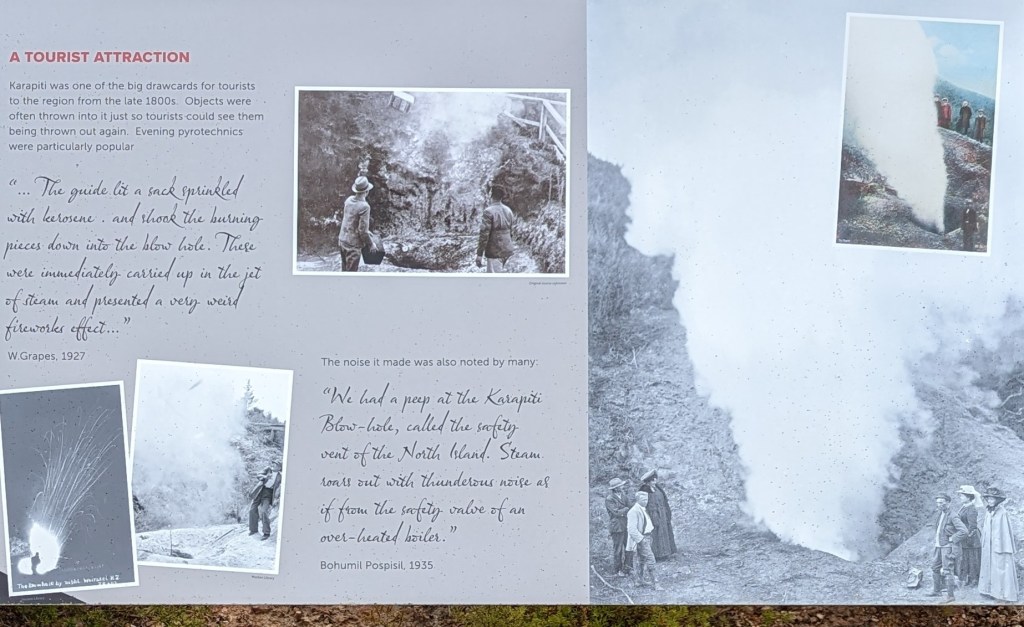 A TOURIST ATTRACTION
Karapiti was one of the big drawcards for tourists
to the region from the late 1800s. Objects were
often thrown into it just so tourists could see them
being thrown out again. Evening pyrotechnics
were particularly popular
“... The guide lit a sack sprinkled
with kerosene . and shook the burning
pieces down into the blow hole. These
were immediately carried up in the jet
of steam and presented a very weird
fireworks effect...”
W.Grapes, 1927
The noise it made was also noted by many:
“We had a peep at the Karapiti
Blow-hole, called the safety
vent of the North Island. Steam
roars out with thunderous noise as
if from the safety valve of an
over-heated boiler.”
Bohumil Pospisil, 1935
The by Wairakei NZ